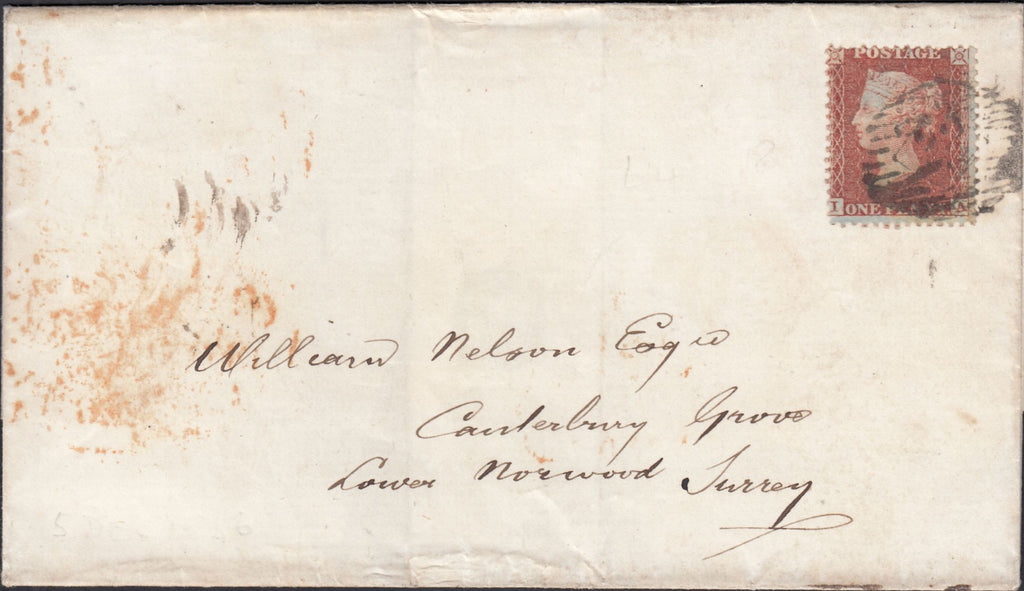 POSTAGE
I
ONE
William Nelson Esqre
Canterbury Grove
Lower Norwood Surrey